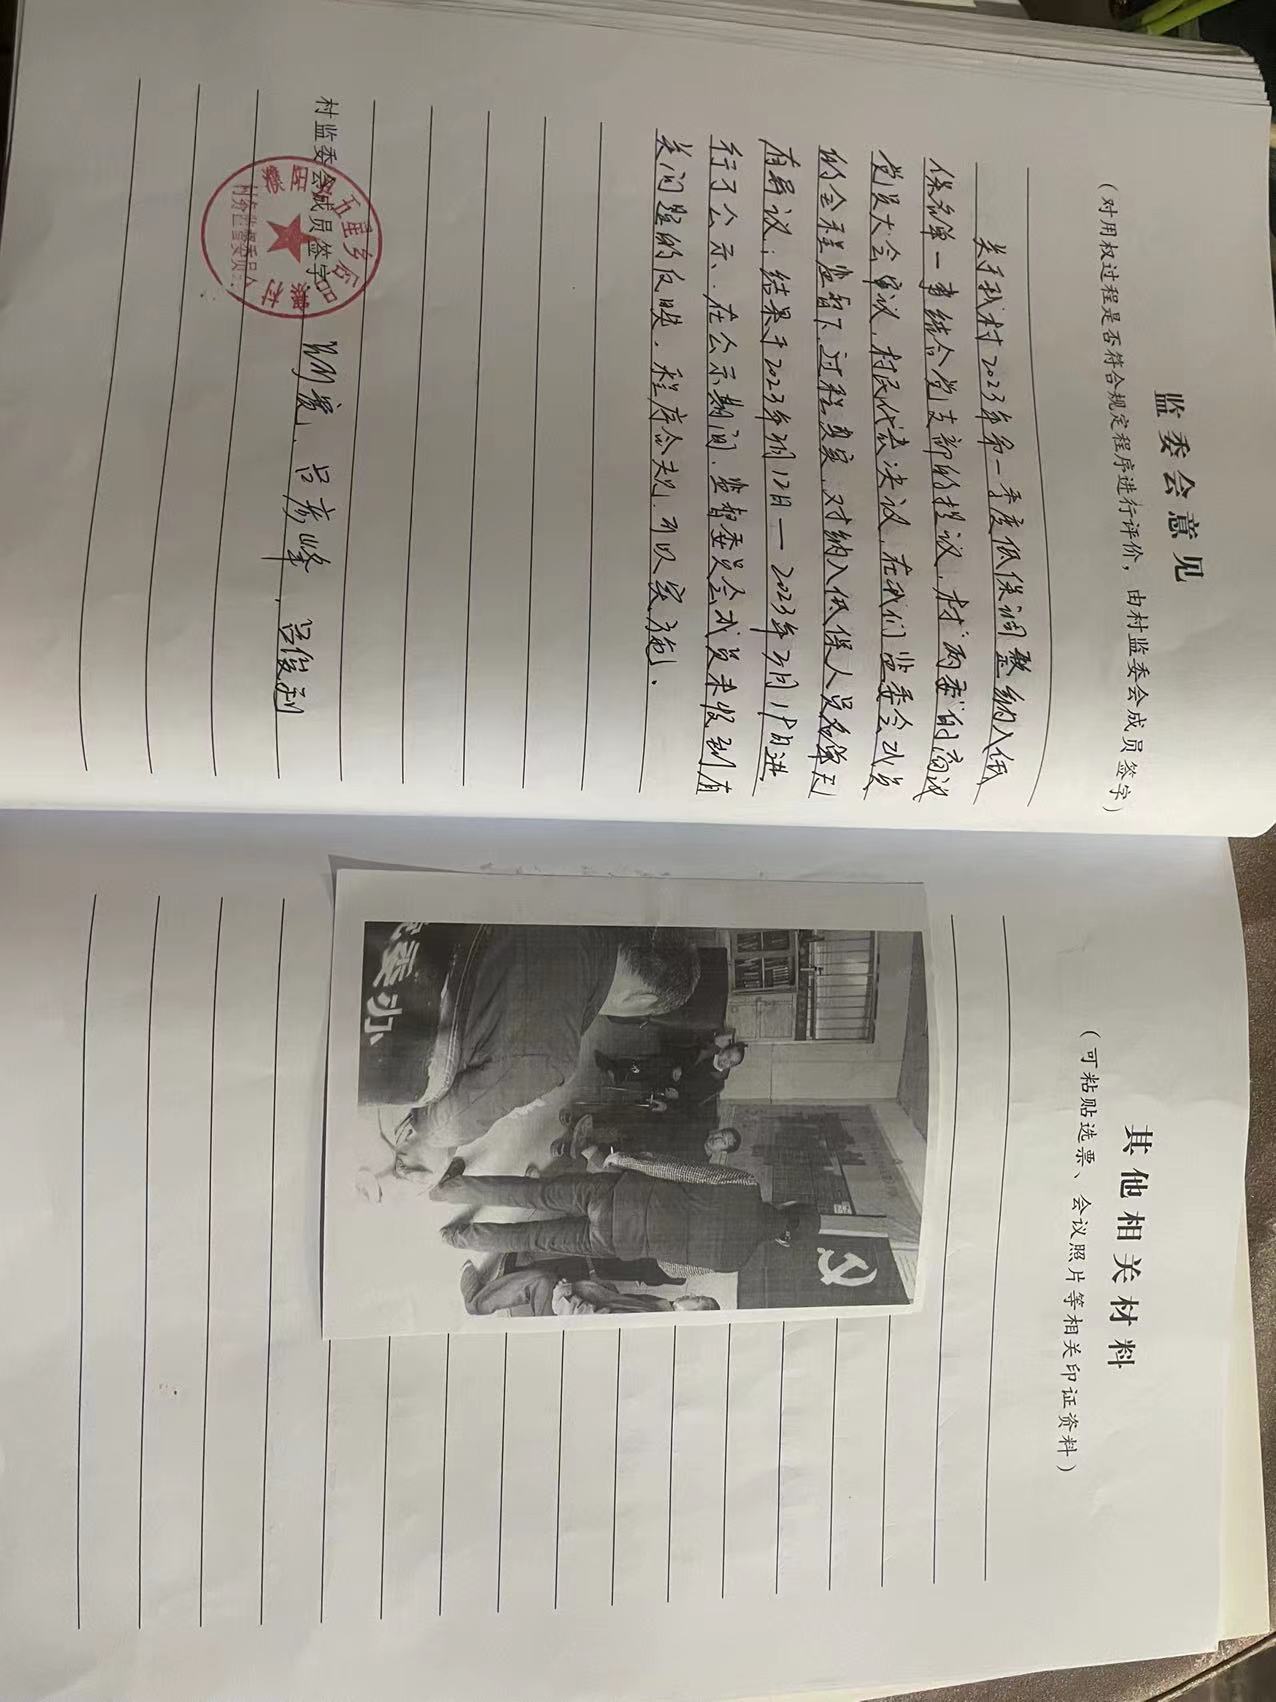 监委会意见
（对用权过程是否符合规定程序进行评价，由村监委会成员签字）
关于我村2023年第一季度低保调整纳入低
保名单一事结合党支部的提议，村“两委”的商议
党员大会审议，村民代表决议，在我们监委会成员
的全程监督下，过程真实，对纳入低保人员名单无
有异议；结果于2023年3月12日—2023年3月19日进
行了公示、在公示期间，监督委员会成员未收到有
关问题的反映，程序合规，可以实施。
村监委会成员签字
吕彦峰，吕俊利
濮阳县五星乡后吕寨村
村务监督委员会
其他相关材料
（可粘贴选票、会议照片等相关印证资料）
党委办